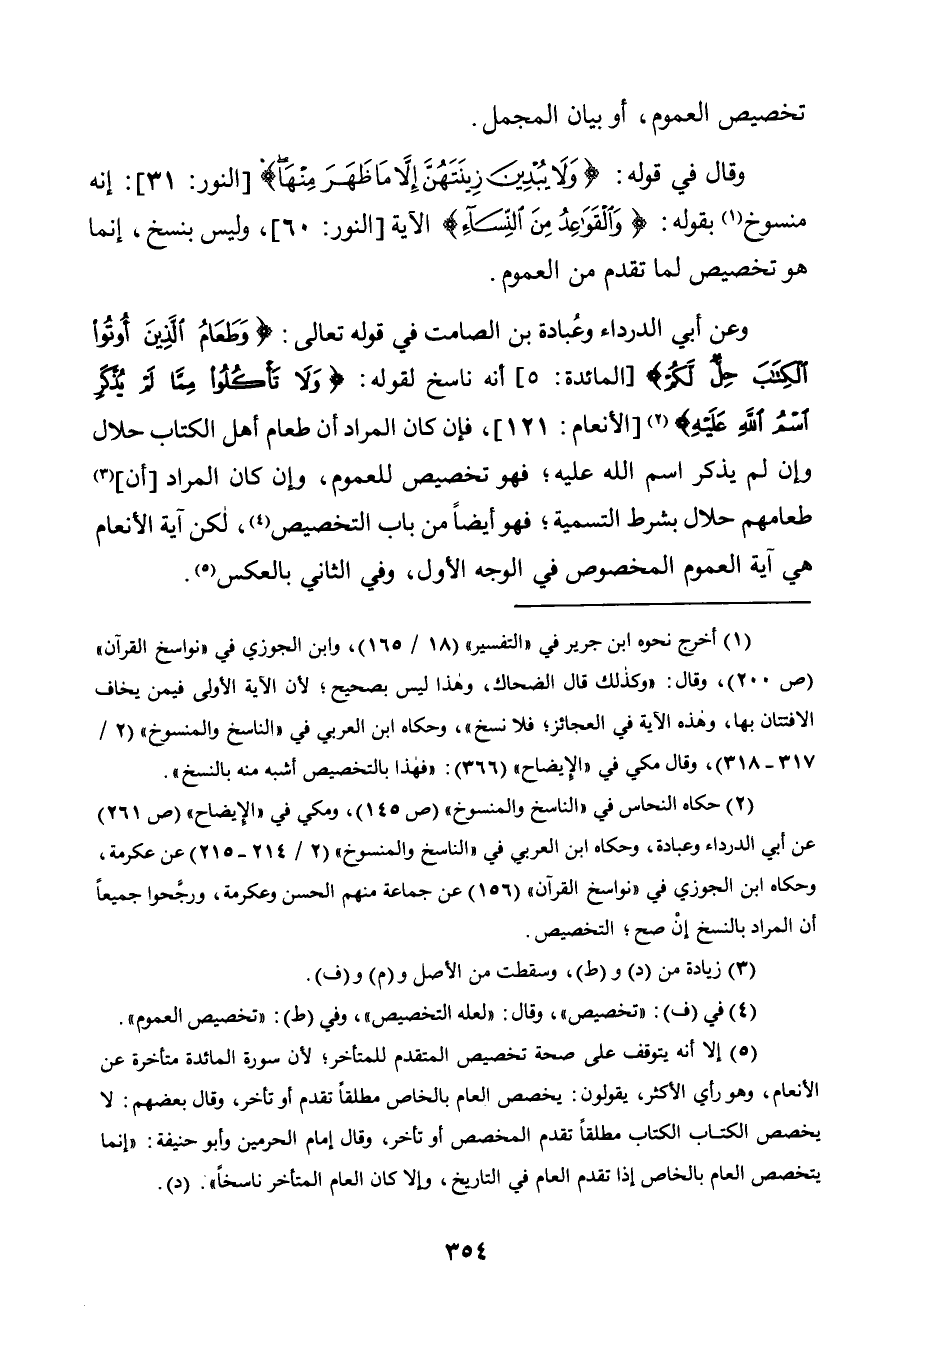 تخصيص العموم، أو بيان المجمل.
وقال في قوله: ﴿ وَلَا يُبْدِينَ زِينَتَهُنَّ إِلَّا مَا ظَهَرَ مِنْهَا ﴾ [النور: ٣١]: إنه
منسوخ(١) بقوله: ﴿ وَٱلْقَوَٰعِدُ مِنَ ٱلنِّسَآءِ ﴾ الآية [النور: ٦٠]، وليس بنسخ، إنما
هو تخصيص لما تقدم من العموم.
وعن أبي الدرداء وعُبادة بن الصامت في قوله تعالى: ﴿ وَطَعَامُ ٱلَّذِينَ أُوتُواْ
ٱلْكِتَٰبَ حِلٌّ لَّكُمْ ﴾ [المائدة: ٥] أنه ناسخ لقوله: ﴿ وَلَا تَأْكُلُواْ مِمَّا لَمْ يُذْكَرِ
ٱسْمُ ٱللَّهِ عَلَيْهِ ﴾(٢) [الأنعام: ١٢١]، فإن كان المراد أن طعام أهل الكتاب حلال
وإن لم يذكر اسم الله عليه؛ فهو تخصيص للعموم، وإن كان المراد [أن](٣)
طعامهم حلال بشرط التسمية؛ فهو أيضاً من باب التخصيص(٤)، لٰكن آية الأنعام
هي آية العموم المخصوص في الوجه الأول، وفي الثاني بالعكس(٥).
(١) أخرج نحوه ابن جرير في «التفسير» (١٨ / ١٦٥)، وابن الجوزي في «نواسخ القرآن»
(ص ٢٠٠)، وقال: «وكذٰلك قال الضحاك، وهٰذا ليس بصحيح؛ لأن الآية الأولى فيمن يخاف
الافتتان بها، وهٰذه الآية في العجائز؛ فلا نسخ»، وحكاه ابن العربي في «الناسخ والمنسوخ» (٢ /
٣١٧ - ٣١٨)، وقال مكي في «الإيضاح» (٣٦٦): «فهٰذا بالتخصيص أشبه منه بالنسخ».
(٢) حكاه النحاس في «الناسخ والمنسوخ» (ص ١٤٥)، ومكي في «الإيضاح» (ص ٢٦١)
عن أبي الدرداء وعبادة، وحكاه ابن العربي في «الناسخ والمنسوخ» (٢ / ٢١٤ - ٢١٥) عن عكرمة،
وحكاه ابن الجوزي في «نواسخ القرآن» (١٥٦) عن جماعة منهم الحسن وعكرمة، ورجَّحوا جميعاً
أن المراد بالنسخ إنْ صح؛ التخصيص.
(٣) زيادة من (د) و(ط)، وسقطت من الأصل و(م) و(ف).
(٤) في (ف): «تخصيص»، وقال: «لعله التخصيص»، وفي (ط): «تخصيص العموم».
(٥) إلا أنه يتوقف على صحة تخصيص المتقدم للمتأخر؛ لأن سورة المائدة متأخرة عن
الأنعام، وهو رأي الأكثر، يقولون: يخصص العام بالخاص مطلقاً تقدم أو تأخر، وقال بعضهم: لا
يخصص الكتاب الكتاب مطلقاً تقدم المخصص أو تأخر، وقال إمام الحرمين وأبو حنيفة: «إنما
يتخصص العام بالخاص إذا تقدم العام في التاريخ، وإلا كان العام المتأخر ناسخاً». (د).
٣٥٤